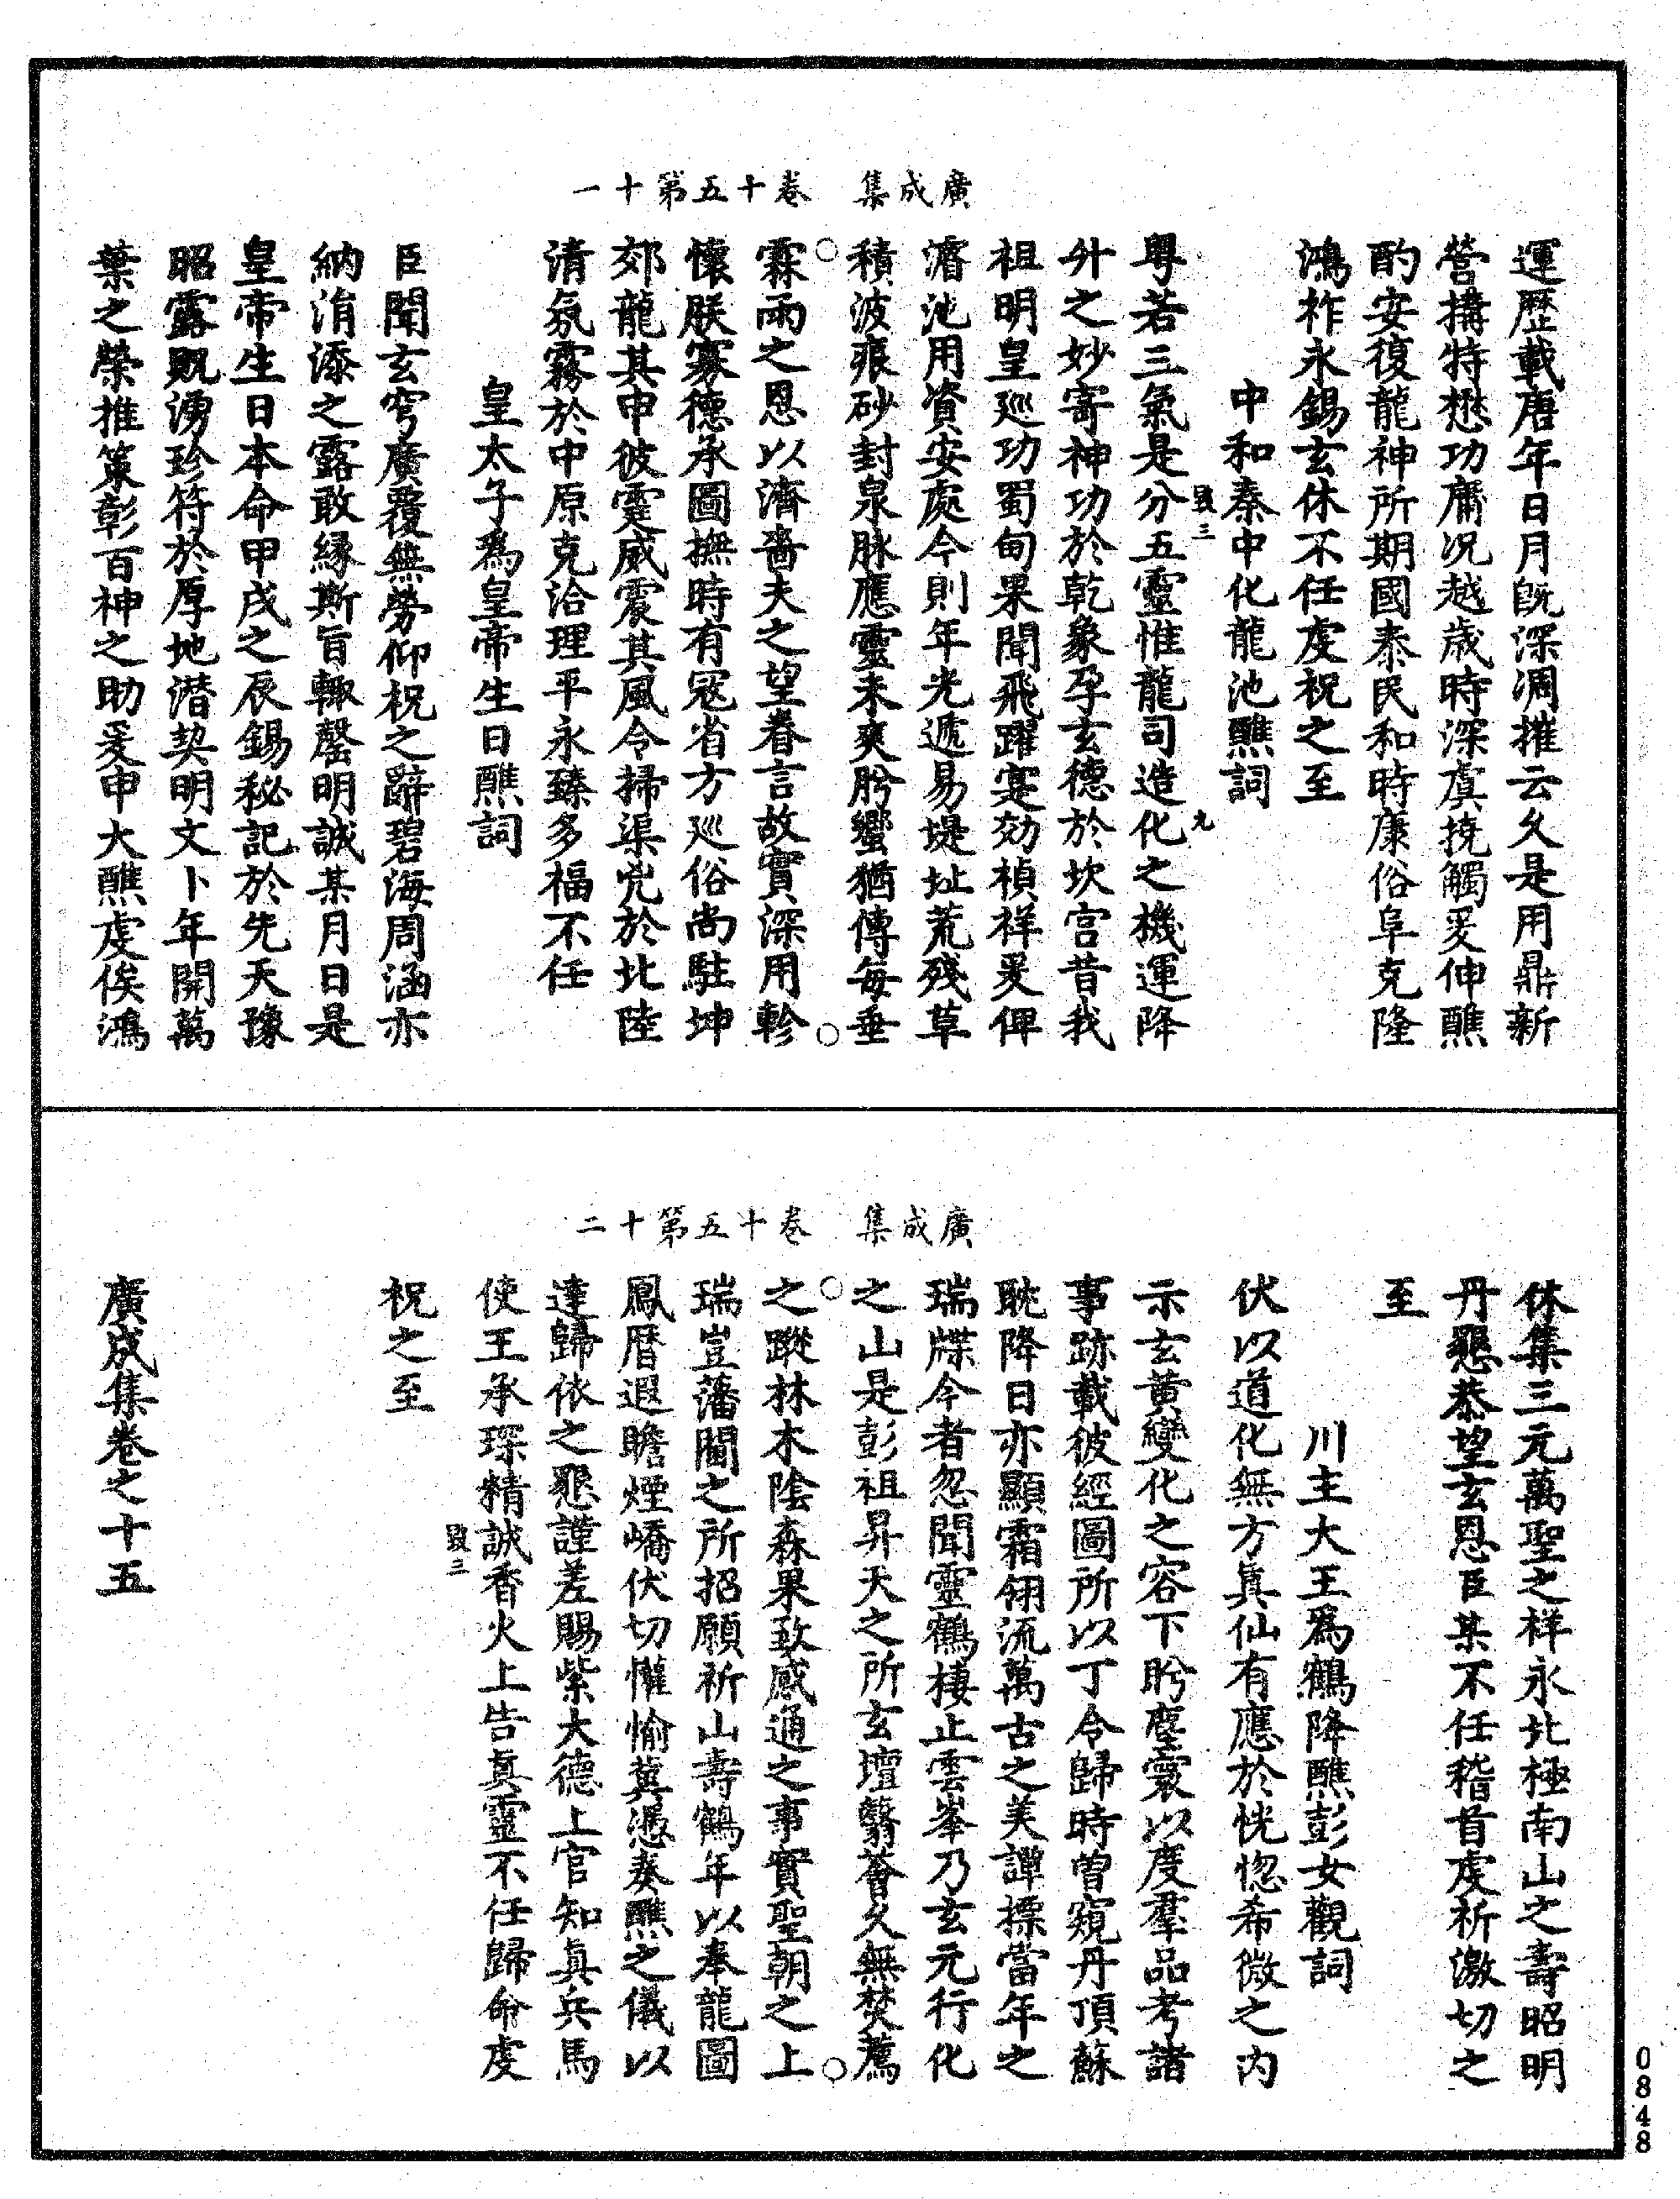 廣成集　卷十五第十一
運歷載唐年日月旣深凋摧云久是用鼎新
營搆特懋功庸况越歲時深虞撓觸爰伸醮
酌安復龍神所期國泰民和時康俗阜克隆
鴻祚永錫玄休不任虔祝之至
中和秦中化龍池醮詞
毀三　九
粤若三氣是分五靈惟龍司造化之機運降
升之妙寄神功於乾象孕玄德於坎宫昔我
祖明皇巡功蜀甸果聞飛躍寔効禎祥爰俾
濬池用資安處今則年光遞易堤址荒殘草
積波痕砂封泉脉應靈未爽肹蠁猶傳每垂
霖雨之恩以濟嗇夫之望眷言故實深用軫
懷朕寡德承圖撫時有冦省方巡俗尚駐坤
郊龍其申彼靈威震其風令掃渠兇於北陸
清氛霧於中原克洽理平永臻多福不任
皇太子爲皇帝生日醮詞
臣聞玄穹廣覆無勞仰祝之辭碧海周涵亦
納涓添之露敢緣斯旨輙罄明誠某月日是
皇帝生日本命甲戌之辰錫秘記於先天豫
昭露貺湧珍符於厚地潜契明文卜年開萬
葉之榮推策彰百神之助爰申大醮虔俟鴻
廣成集　卷十五第十二
休集三元萬聖之祥永北極南山之壽昭明
丹懇恭望玄恩臣某不任稽首虔祈激切之
至
川主大王爲鶴降醮彭女觀詞
伏以道化無方眞仙有應於恍惚希微之内
示玄黄變化之容下盻塵寰以度羣品考諸
事跡載彼經圖所以丁令歸時曽窺丹頂蘇
耽降日亦顯霜翎流萬古之美譚摽當年之
瑞牒今者忽聞靈鶴棲止雲峯乃玄元行化
之山是彭祖昇天之所玄壇翳薈久無焚薦
之蹤林木陰森果致感通之事實聖朝之上
瑞豈藩閫之所招願祈山壽鶴年以奉龍圖
鳳暦遐瞻煙嶠伏切懽愉冀憑奏醮之儀以
達歸依之懇謹差賜紫大德上官知眞兵馬
使王承琛精誠香火上告眞靈不任歸命虔
毀三
祝之至
廣成集卷之十五
0848